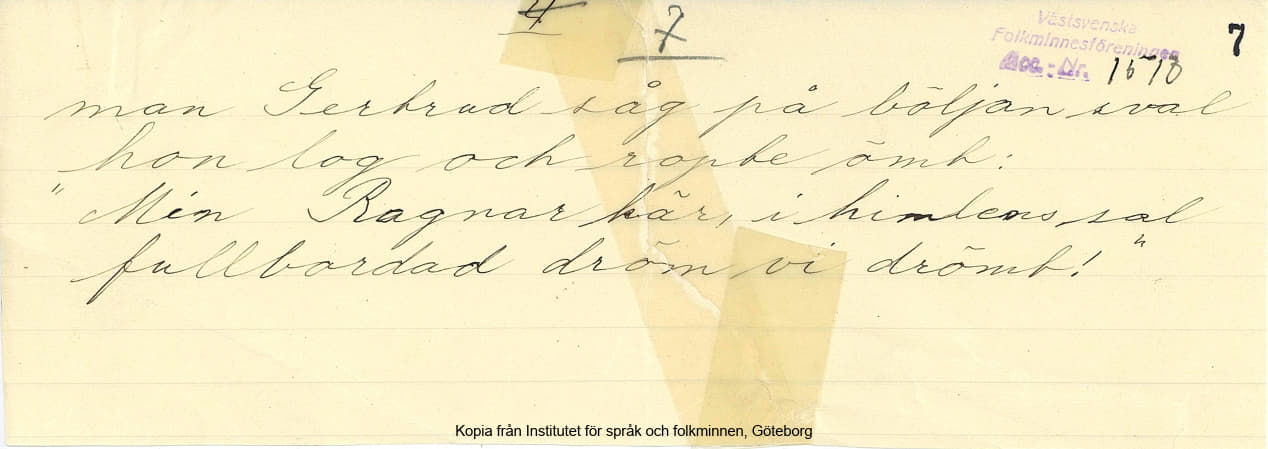 4
7
Västsvenska
Folkminnesföreningen
Acc.-Nr. 1578
7
man Gertrud såg på böljan sval
hon log och ropte ömt:
"Min Ragnar kär, i himlens sal
fullbordad dröm vi drömt!"
Kopia från Institutet för språk och folkminnen, Göteborg